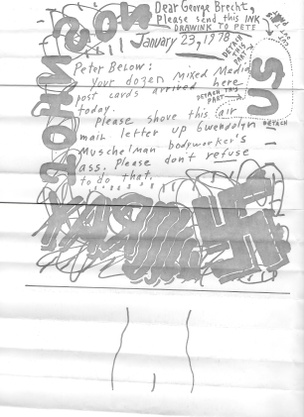 Dear George Brecht,
Please send this INK
DRAWINK TO PETE
January 23, 1978
DETACH
THIS
PART
Peter Below:
Your dozen mixed Madin
post cards arrived here
today.
DETACH THIS
PART
US
DETACH
I please shove this air
mail letter up Gwendolyn
Muschelman bodyworker's
ass. Please don't refuse
to do that.